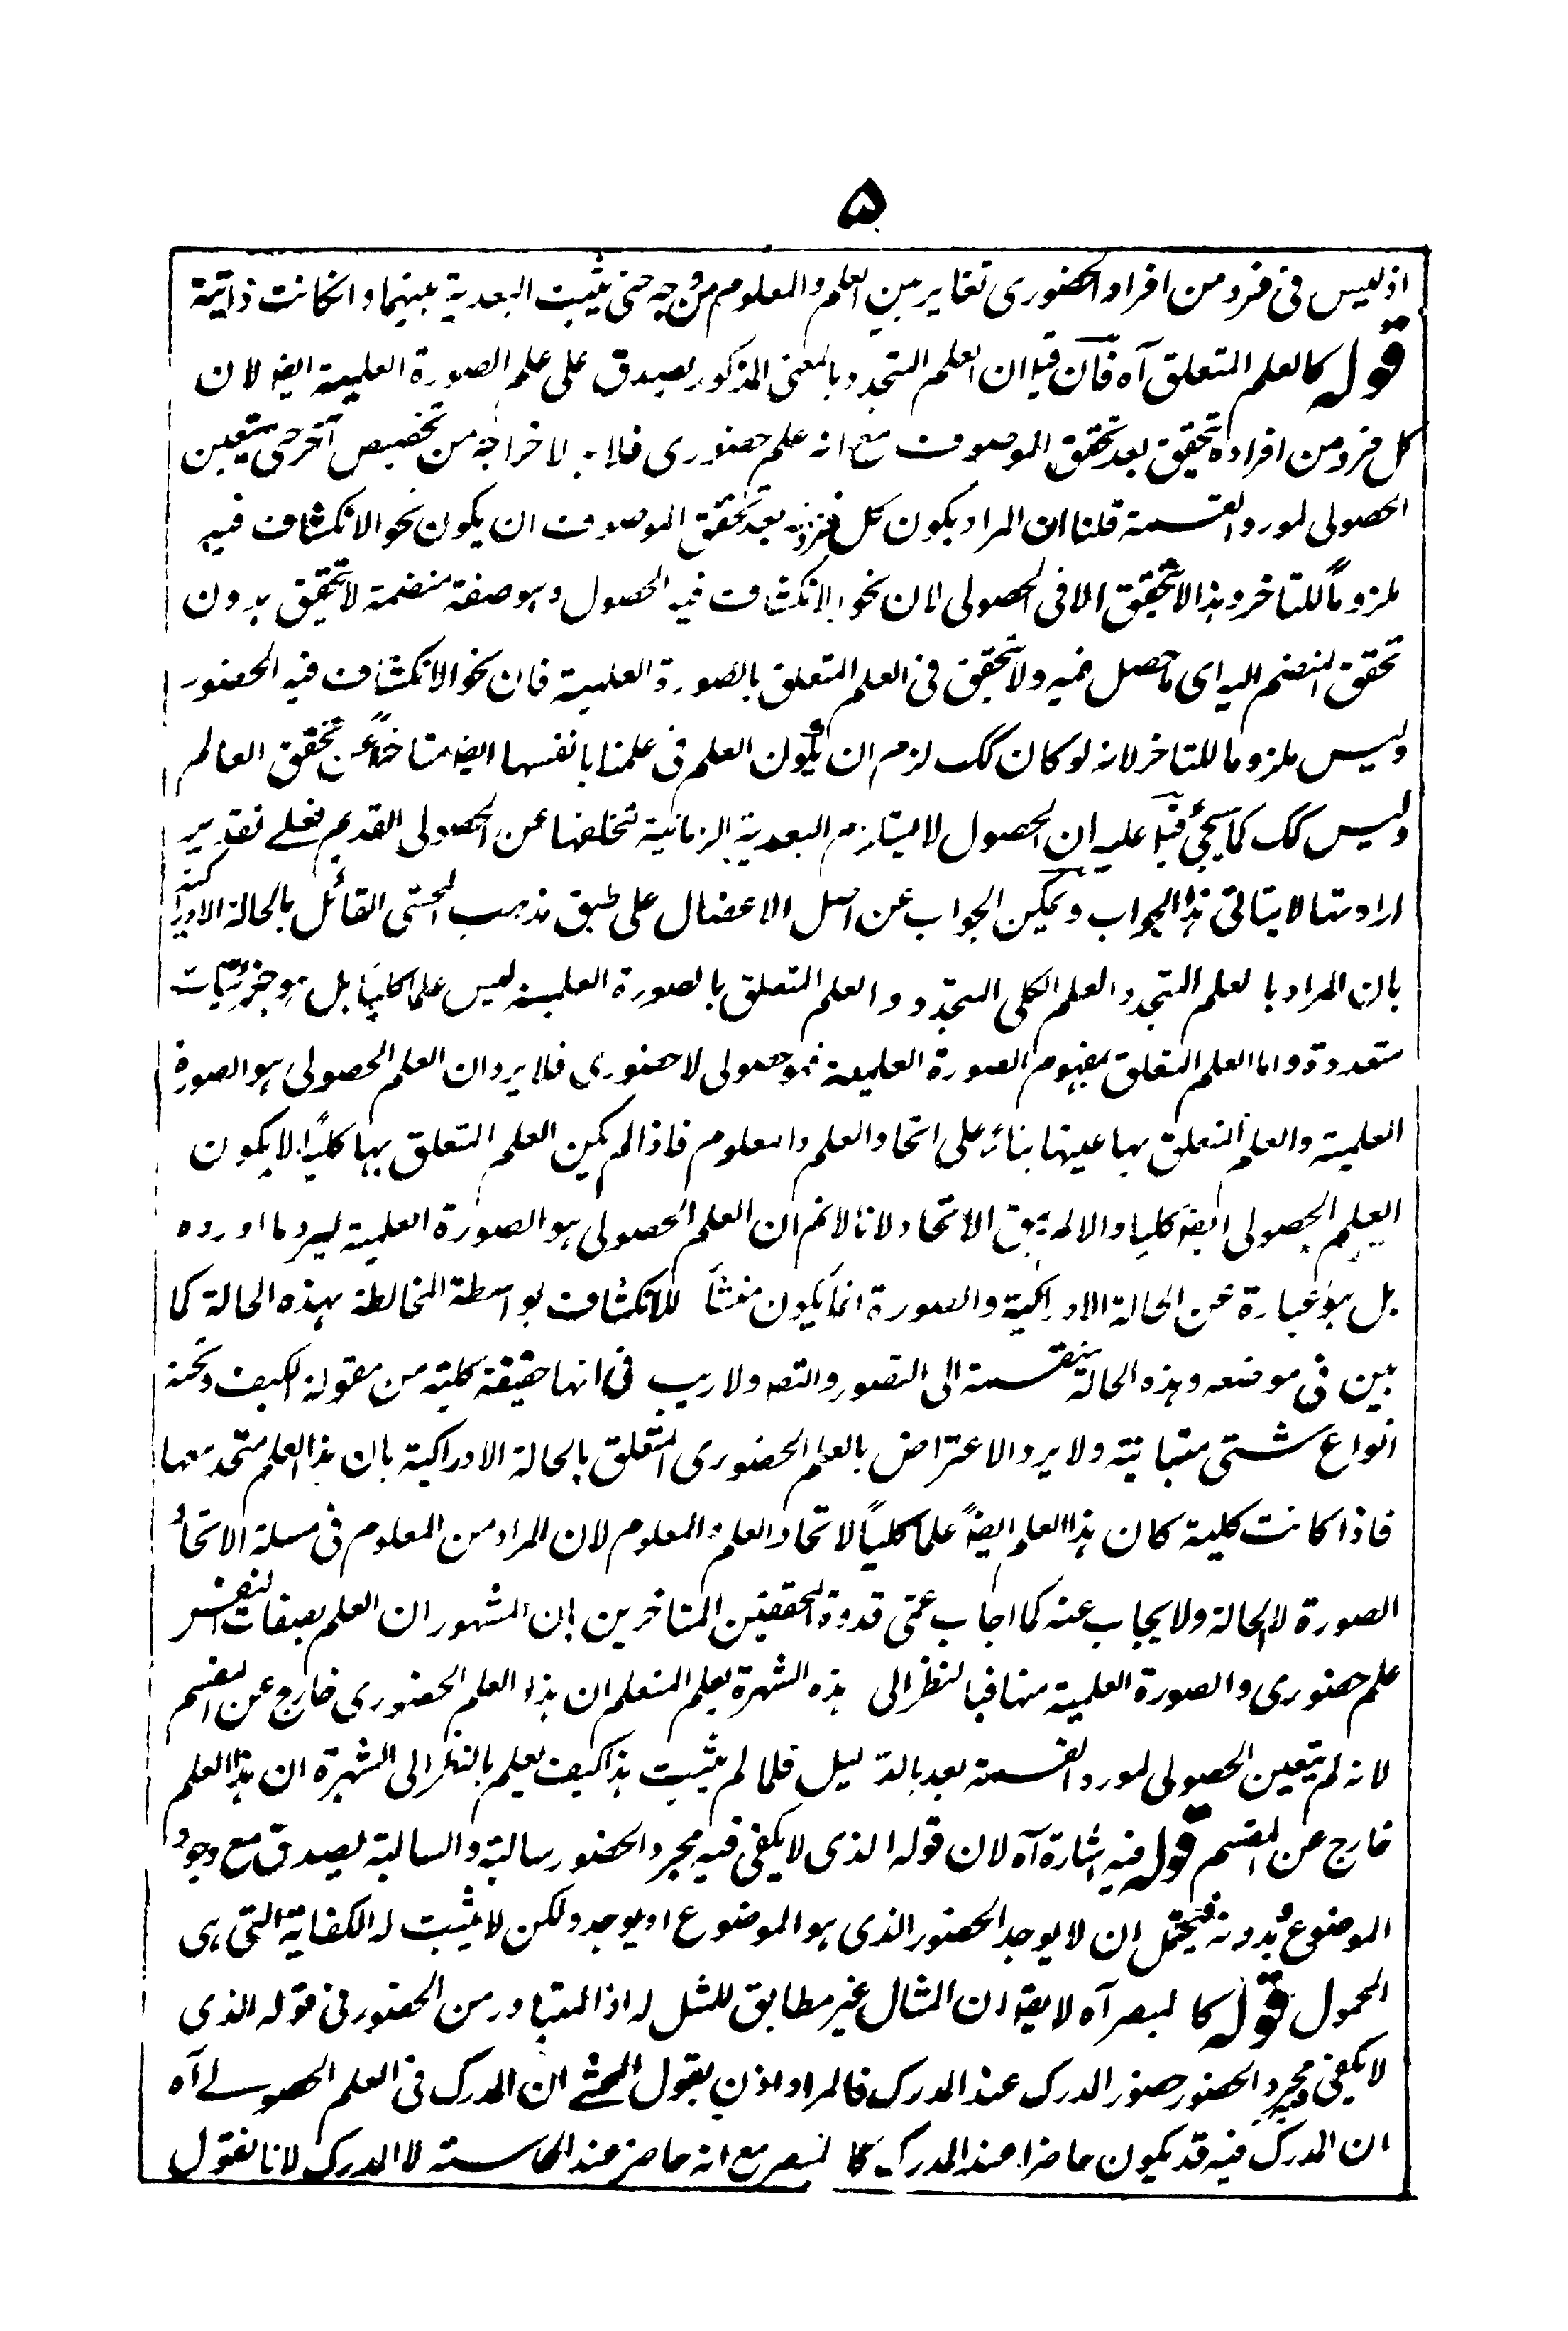 ۵
اذ ليس فى فرد من افراد الحضورى تغاير بين العلم والمعلوم من وجه حتى يثبت البعدية بينهما وانكانت ذاتية
قوله كالعلم المتعلق آه فان قيل ان العلم المتجدد بالمعنى المذكور يصدق على علم الصورة العلمية ايضا لان
كل فرد من افراده تحقق بعد تحقق الموصوف مع انه علم حضورى فلا بد لاخراجه من تخصيص آخر حتى يتعين
الحصولى لمورد القسمة قلنا ان المراد بكون كل فرد منه بعد تحقق الموصوف ان يكون نحو الانكشاف فيه
ملزوماً للتاخر وهذا لا يتحقق الا فى الحصولى لان نحو الانكشاف فيه الحصول وهو صفة منضمة لا تحقق بدون
تحقق المنضم اليه اى ما حصل فيه ولا يتحقق فى العلم المتعلق بالصورة العلمية فان نحو الانكشاف فيه الحضور
وليس ملزوما للتاخر لانه لو كان كك لزم ان يكون العلم فى علمنا بانفسها ايضا متاخراً عن تحقق العالم
وليس كك كما سيجئ قيل عليه ان الحصول لا يستلزم البعدية الزمانية لتخلفها عن الحصولى القديم فعلے تقدير
ارادتها لا يتاتى هذا الجواب ويمكن الجواب عن اصل الاعضال على طبق مذهب المحشى القائل بالحالة الادراكية
بان المراد بالعلم المتجدد العلم الكلى المتجدد والعلم المتعلق بالصورة العلمية ليس علما كليا بل هو جزئيات
متعددة واما العلم المتعلق بمفهوم الصورة العلمية فهو حصولى لا حضورى فلا يرد ان العلم الحصولى هو الصورة
العلمية والعلم المتعلق بها عينها بناءً على اتحاد العلم والمعلوم فاذا لم يكن العلم المتعلق بها كلياً لا يكون
العلم الحصولى ايضا كليا والا لم يبق الاتحاد لانا لا نم ان العلم الحصولى هو الصورة العلمية ليرد ما اورده
بل هو عبارة عن الحالة الادراكية والصورة انما يكون منشأ للانكشاف بواسطة المخالطة بهذه الحالة كما
بين فى موضعه وهذه الحالة منقسمة الى التصور والتصـ ولا ريب فى انها حقيقة كلية من مقولة الكيف وتحته
انواع شتى متباينة ولا يرد الاعتراض بالعلم الحضورى المتعلق بالحالة الادراكية بان هذا العلم متحد معها
فاذا كانت كلية كان هذا العلم ايضاً علما كلياً لاتحاد العلم والمعلوم لان المراد من المعلوم فى مسلة الاتحاد
الصورة لا الحالة ولا يجاب عنه كما اجاب عمى قدوة المحققين المتاخرين بان المشهور ان العلم بصفات النفس
علم حضورى والصورة العلمية منها فبالنظر الى هذه الشهرة يعلم المتعلم ان هذا العلم الحضورى خارج عن المقسم
لانه لم يتعين الحصولى لمورد القسمة بعد بالدليل فلما لم يثبت هذا كيف يعلم بالنظر الى الشهرة ان هذا العلم
خارج عن المقسم قوله فيه اشارة آه لان قوله الذى لا يكفى فيه مجرد الحضور سالبة والسالبة يصدق مع وجود
الموضوع وبدونه فيحتمل ان لا يوجد الحضور الذى هو الموضوع او يوجد ولكن لا يثبت له الكفاية التى هى
المحمول قوله كالمبصر آه لا يقـ ان المثال غير مطابق للمثل له اذ المتبادر من الحضور فى قوله الذى
لا يكفى فيه مجرد الحضور حضور المدرك عند المدرك فالمراد اذن بقول المحشے ان المدرك فى العلم الحصولے آه
ان المدرك فيه قد يكون حاضرا عند المدرك كالمبصر مع انه حاضر عند الحاسة لا المدرك لانا نقول